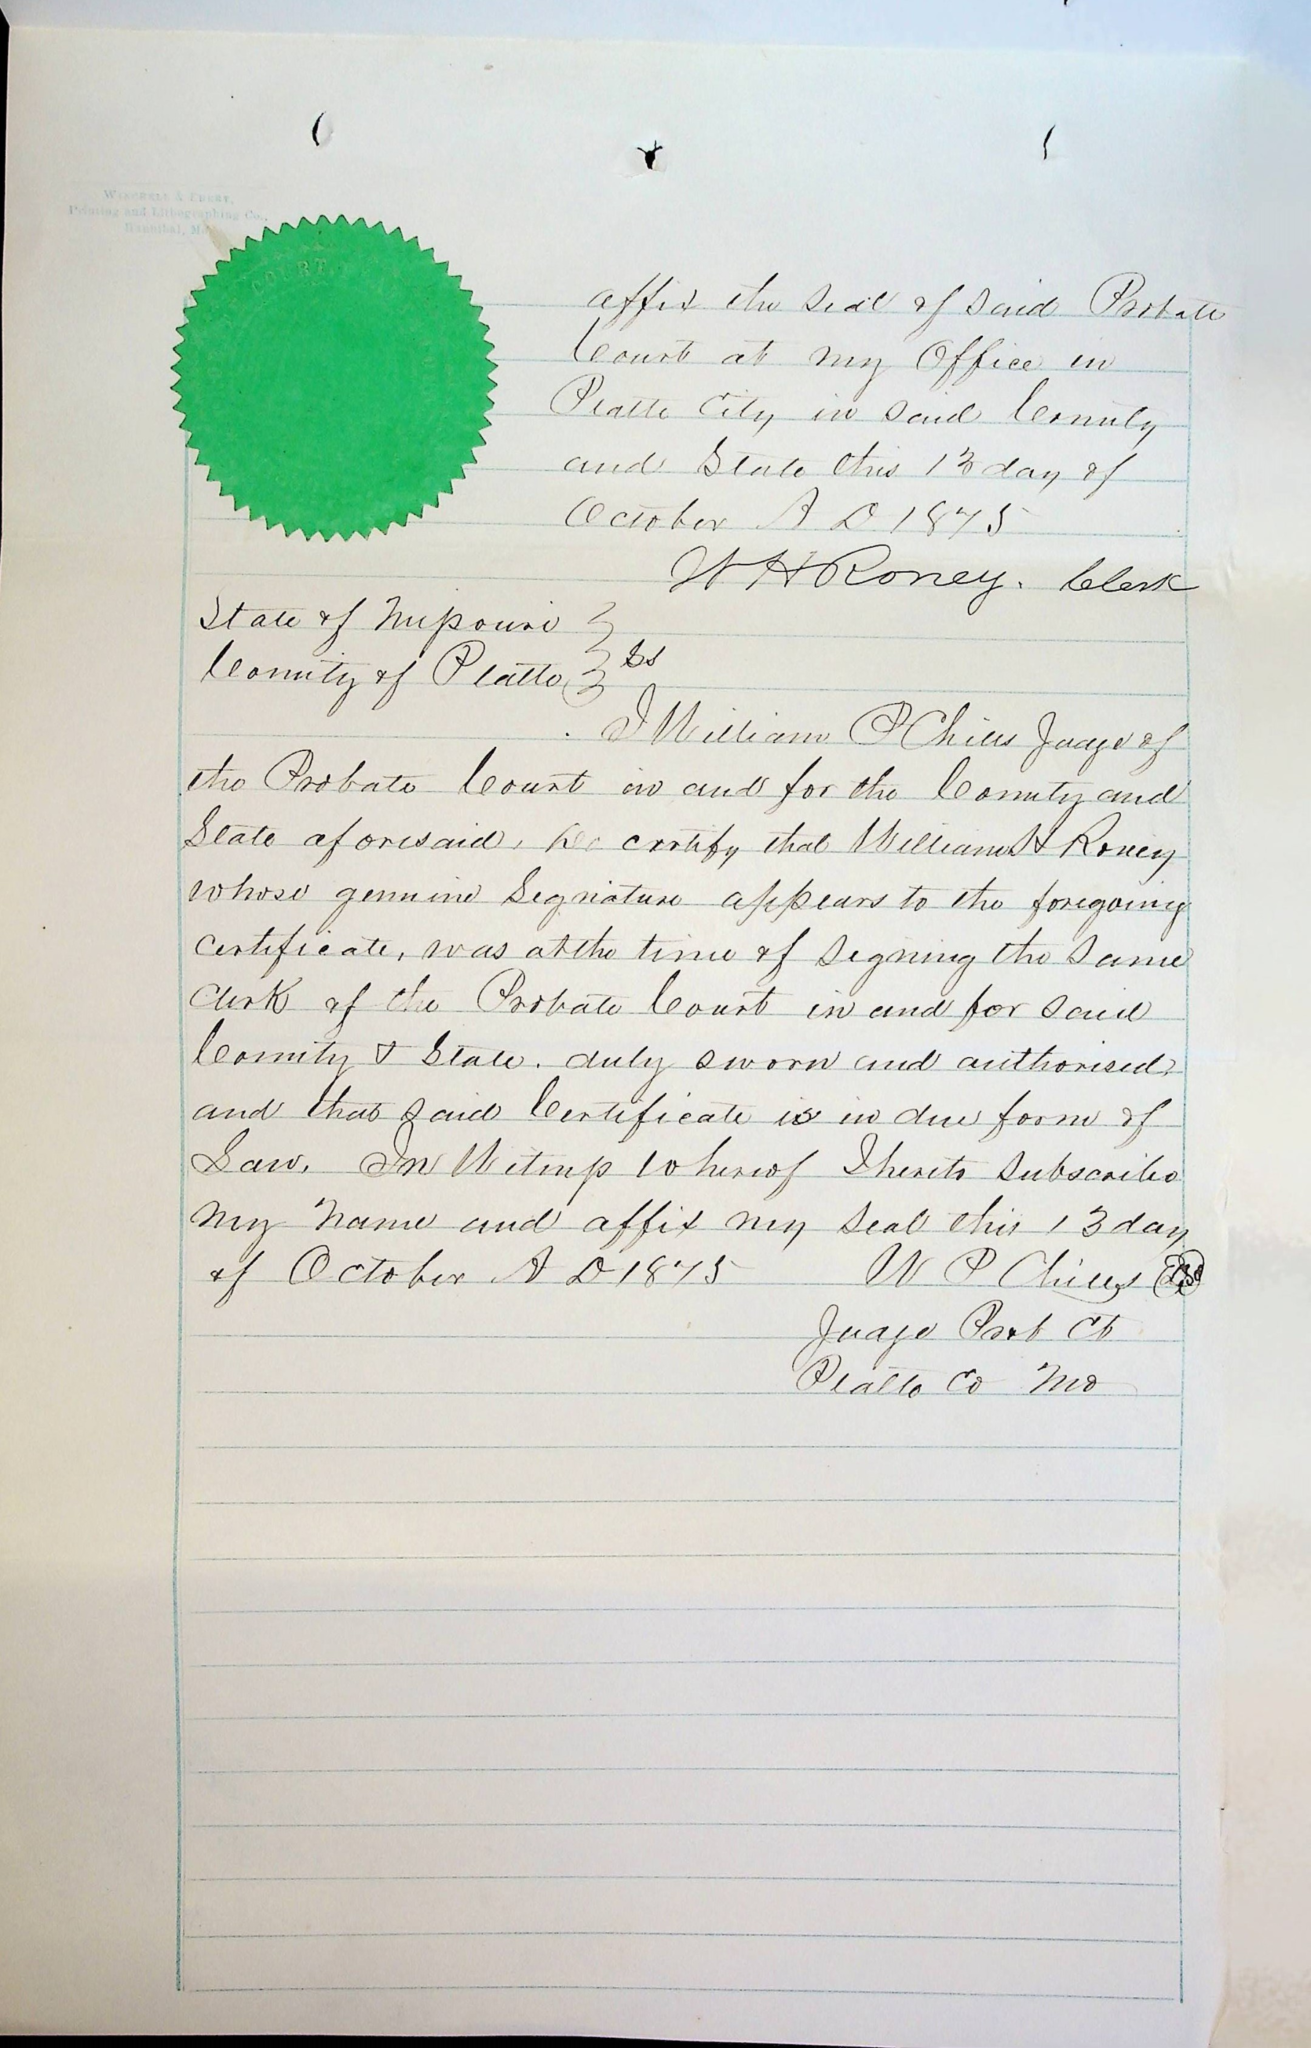 Printing and Lithographing Co.,
Hannibal, Mo.
COURT
affix the seal of said Probate
Court at my Office in
Platte City in said County
and State this 13 day of
October A D 1875
W H Roney. Clerk
State of Missouri
County of Platte } ss
I William P Chiles Judge of
the Probate Court in and for the County and
State aforesaid, do certify that William H Roney
whose genuine Signature appears to the foregoing
certificate, was at the time of signing the same
Clerk of the Probate Court in and for said
County & State. duly sworn and authorised,
and that said Certificate is in due form of
Law. In Witness Whereof I hereto subscribe
my name and affix my seal this 13 day
of October A D 1875 W P Chiles
Judge Prob Ct
Platte Co Mo